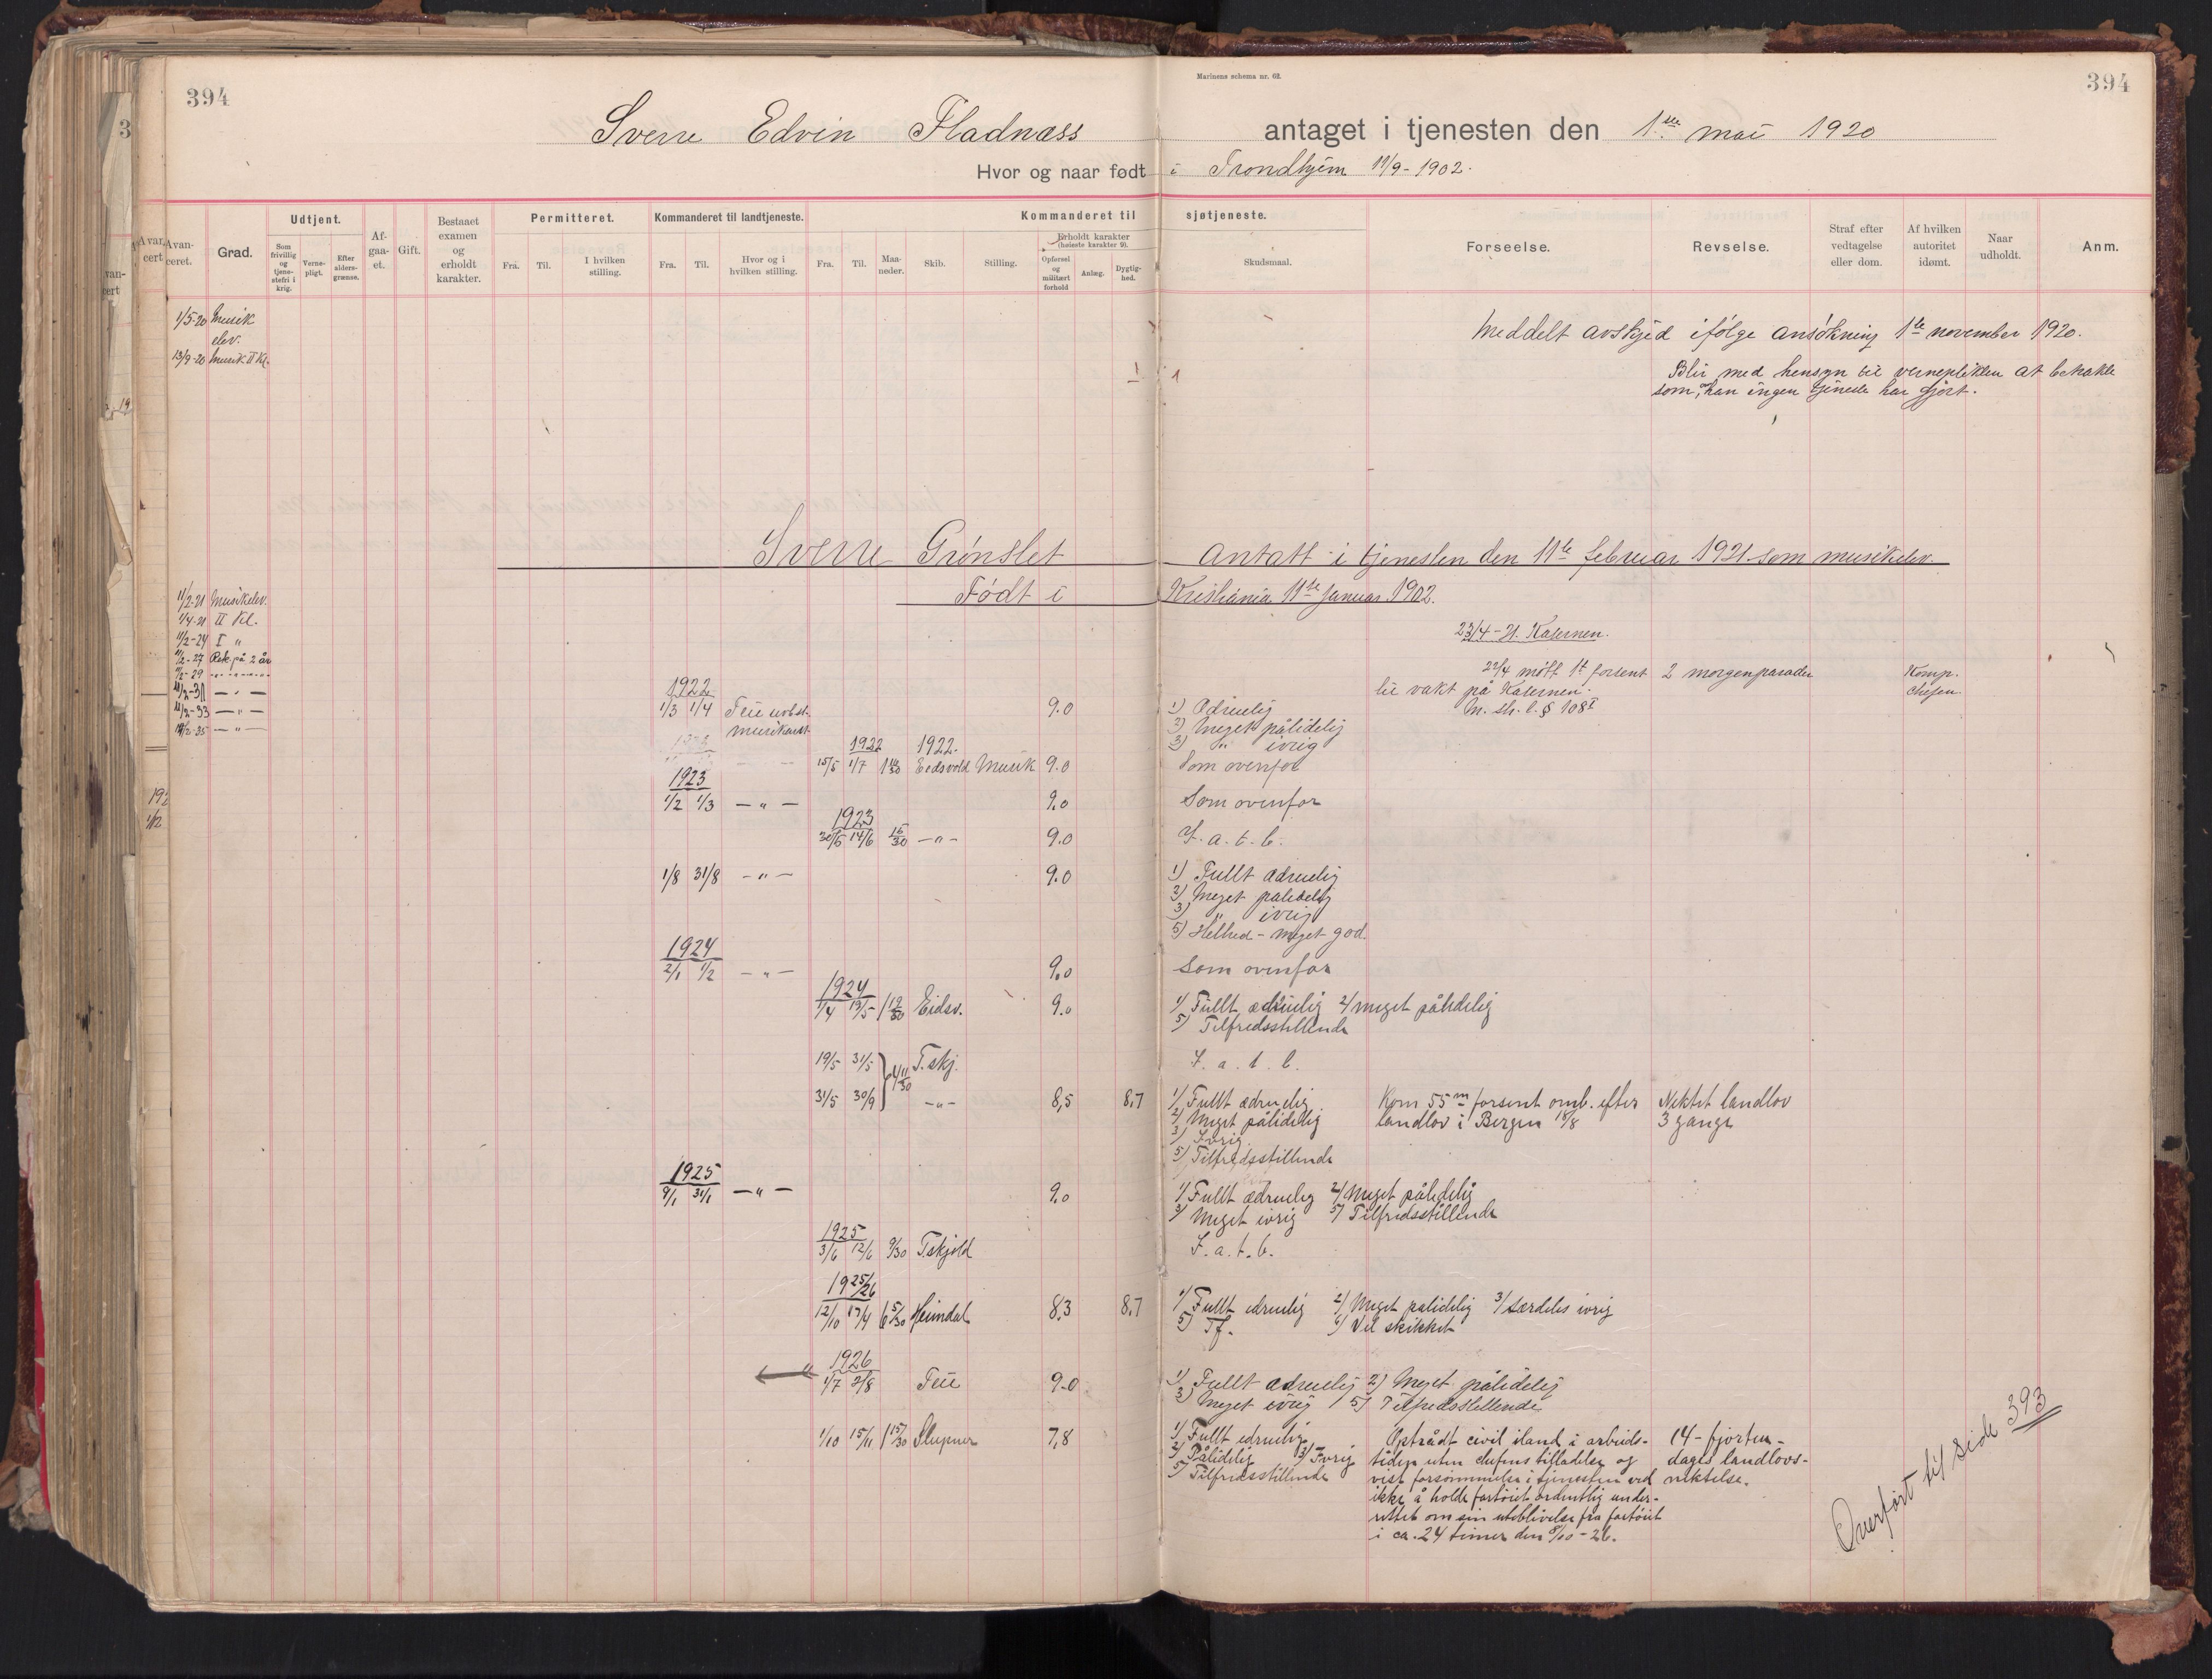 394
Marinens schema nr. 62.
394
Sverre Edvin Fladnæss antaget i tjenesten den 1ste mai 1920
Hvor og naar født i Trondhjem 11/9-1902.
Avanceret.
Grad.
Udtjent.
Som frivillig og tjenestefri i krig.
Verne-pligt.
Efter alders-grænse.
Af-gaa-et.
Gift.
Bestaaet examen og erholdt karakter.
Permitteret.
Fra.
Til.
I hvilken stilling.
Kommanderet til landtjeneste.
Fra.
Til.
Hvor og i hvilken stilling.
Kommanderet til sjøtjeneste.
Fra.
Til.
Maa-neder.
Skib.
Stilling.
Erholdt karakter
(høieste karakter 9).
Opførsel og militært forhold
Anlæg.
Dygtig-hed.
Skudsmaal.
Forseelse.
Revselse.
Straf efter vedtagelse eller dom.
Af hvilken autoritet idømt.
Naar udholdt.
Anm.
1/5-20 Musik
elev.
13/9-20 Musik. II Kl.
Meddelt avskjed ifølge ansøkning 1ste november 1920.
Blir med hensyn til verneplikten at betrakte
som om han ingen tjeneste har gjort.
Sverre Grønslet Antatt i tjenesten den 11te februar 1921 som musikelev.
Født i Kristiania 11te januar 1902.
11/2-21 Musikelev.
1/4-21 II Kl.
11/2-24 I "
11/2-27 Rek. på 2 år
11/2-29 " " "
11/2-31 — " —
11/2-33 — " —
11/2-35 — " —
23/4-21. Kasernen.
22/4 møtt 1t forsent 2 morgenparader Komp.
til vakt på Kasernen. chefen
M. str. l. § 108 I
1922
1/3 1/4 Tiie
musikant 9.0 1) Ædruelig
2) Meget pålidelig
3) " ivrig
1922 1922.
15/5 1/7 1 16/30 Eidsvold Musik 9.0 Som ovenfor
1923
1/2 1/3 — " — 9.0 Som ovenfor
1923
30/5 14/6 15/30 — " — 9.0 I. a. t. b.
1/8 31/8 — " — 9.0 1) Fullt ædruelig
2) Meget pålidelig
3) " ivrig
5) Helhed - meget god.
1924
2/1 1/2 — " — 9.0 Som ovenfor
1924
1/4 19/5 1 19/30 Eidsv. 9.0 1/ Fullt ædruelig 2/ meget pålidelig
5/ Tilfredsstillende
19/5 31/5 T.skj. I. a. t. b.
31/5 30/9 4 11/30 — " — 8,5 8,7 1/ Fullt ædruelig Kom 55 m forsent omb. efter Nektet landlov
2/ Meget pålidelig landlov i Bergen 18/8 3 gange
3/ Ivrig
5/ Tilfredsstillende
1925
9/1 31/1 — " — 9.0 1/ Fullt ædruelig 2/ Meget pålidelig
3/ Meget ivrig 5/ Tilfredsstillende
1925
3/6 12/6 9/30 T.skjold I. a. t. b.
1925/26
12/10 17/4 6 5/30 Heimdal 8,3 8,7 1/ Fullt edruelig 2/ Meget pålidelig 3/ særdeles ivrig
5/ Tf. 6/ Vel skikket
1926
1/7 2/8 Tiie 9.0 1) Fullt ædruelig 2) Meget pålidelig
3) Meget ivrig 5) Tilfredsstillende
1/10 15/11 1 15/30 Sleipner 7,8 1/ Fullt edruelig Optrådt civil iland i arbeids- 14 - fjorten -
2/ Pålidelig 3/ Ivrig tiden uten chefens tilladelse og dages landlovs-
5/ Tilfredsstillende vist forsømmelse i tjenesten ved nektelse.
ikke å holde fartøiet ordentlig under-
rettet om sin uteblivelse fra fartøiet
i ca. 24 timer den 8/10-26.
Overført til side 393